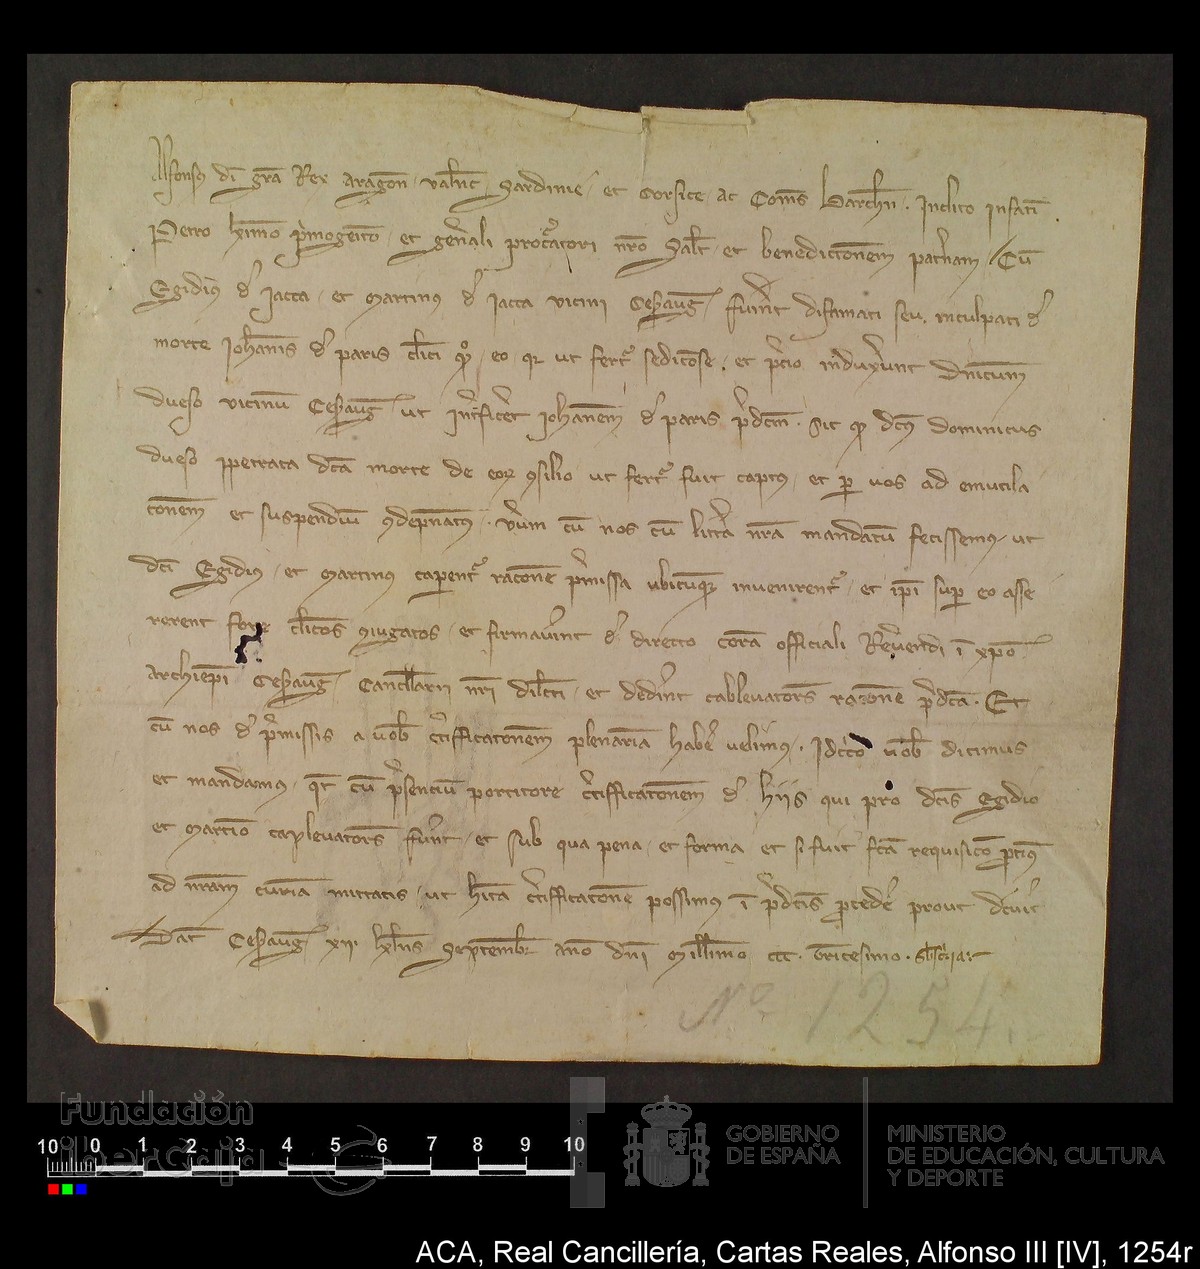 Alfonsus di gra Rex Aragon Valnc Sardinie et Corsice ac Comes Barchn. Inclito Infanti
Petro kmo primogenito et gnali procuratori nro Salt et benedictionem paternam Cum
Egidius de Jacca et Martinus de Jacca vicini Cesaraug fuerint difamati seu inculpati de
morte Johanis de paris clici eo qr ut fertur sediciose et precio induxerunt Dnicum
dueso vicinum Cesaraug ut interficeret Johanem de paris predcm. Sic qd dcus Dominicus
dueso ppetrata dca morte de eor consilio ut fertur fuit captus et per vos ad emutila
tionem et suspendium condepnatus. Verum cum nos cum littera nra mandatum fecissemus ut
dci Egidius et Martinus caperentur racone premissa ubicumque invenirentur et ipi super eo asse
rerent fore clicos coniugatos et firmaverint de directo coram officiali Reverendi in xpo
Archiepi Cesaraug Cancellarii nri dilecti et dederint cablevatores racone predca. Et
cum nos de premissis a vob certifficatonem plenariam habere velimus. Idcirco vob dicimus
et mandamus qt cum presencium portitore certifficatonem de hiis qui pro dcis Egidio
et Martino caplevatores fuerint et sub qua pena et forma et si fuit fca requisico
ad nram curiam mittatis ut hita certifficatone possimus in predcis procedere prout
Dat Cesaraug xii kalns Septembr ano dni Millimo ccc tricesimo.
Nº 1254.
Fundación
iberCaja
10 0 1 2 3 4 5 6 7 8 9 10
GOBIERNO
DE ESPAÑA
MINISTERIO
DE EDUCACIÓN, CULTURA
Y DEPORTE
ACA, Real Cancillería, Cartas Reales, Alfonso III [IV], 1254r